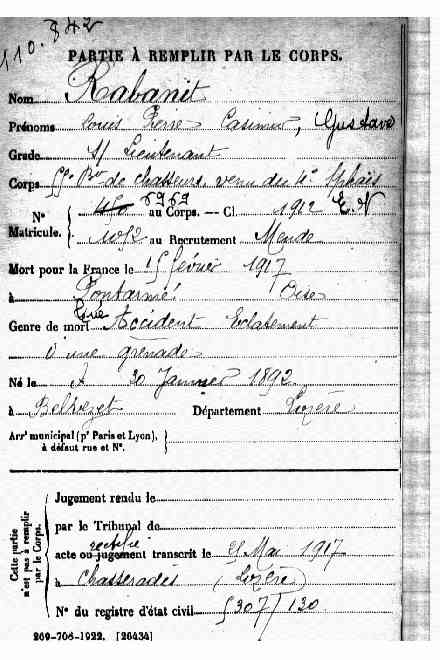 110.842
PARTIE À REMPLIR PAR LE CORPS.
Nom Rabanit
Prénoms Louis Pierre Casimir, Gustave
Grade S/ Lieutenant
Corps de chasseurs, venu du 4e Spahis
6969
N° au Corps. — Cl. 1912 E.V
Matricule. 1052 au Recrutement Mende
Mort pour la France le 15 février 1917
à Pontarmé Oise
Genre de mort Tué Accident Eclatement
d'une grenade
Né le 20 Janvier 1892
à Belvezet Département Lozère
Arrt municipal (pr Paris et Lyon),
à défaut rue et N°.
Cette partie n'est pas à remplir par le Corps.
Jugement rendu le
par le Tribunal de
rectifié
acte ou jugement transcrit le Mai 1917
à Chasseradès (Lozère)
N° du registre d'état civil 307/130
269-706-1922. [26434]